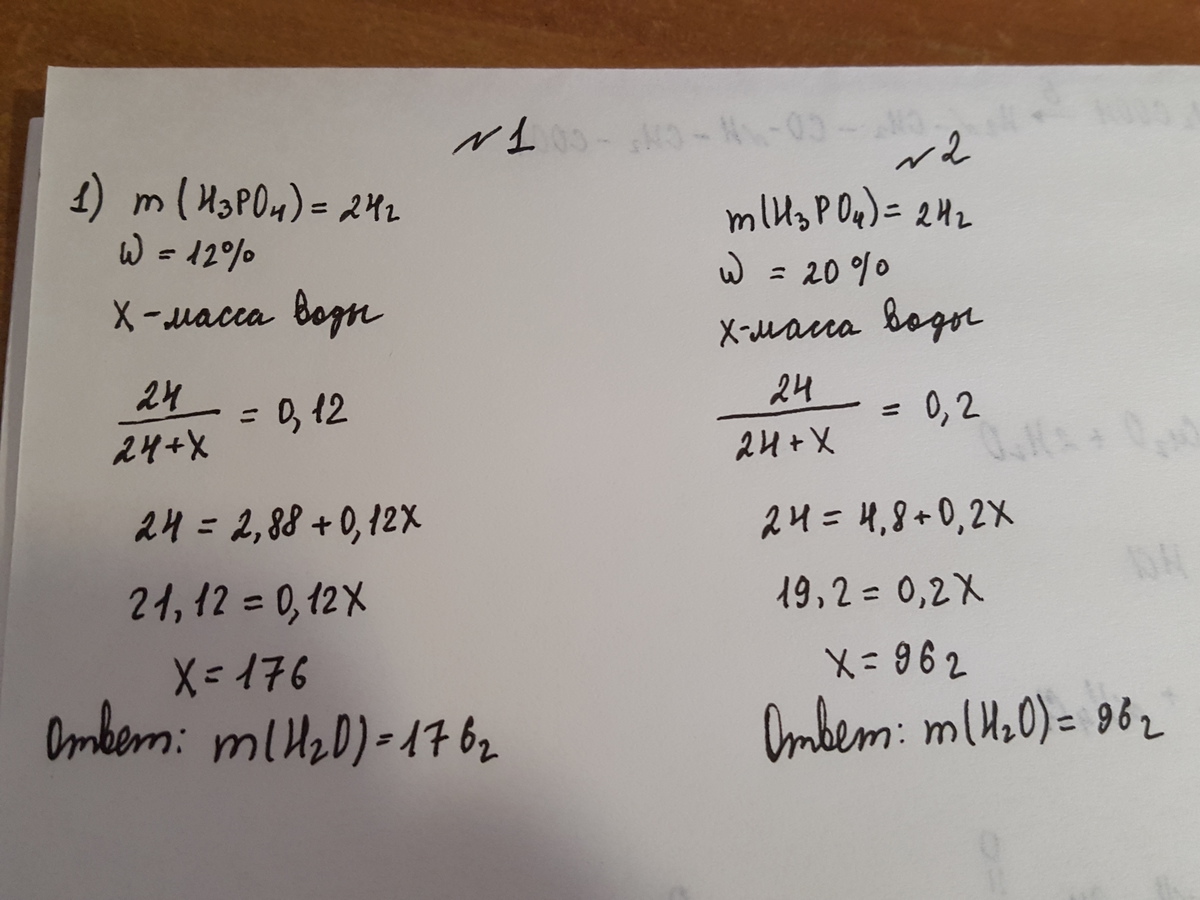 №1
1) m(H₃PO₄) = 24г
W = 12%
X - масса воды
24/(24+X) = 0,12
24 = 2,88 + 0,12X
21,12 = 0,12X
X = 176
Ответ: m(H₂O) = 176г
№2
m(H₃PO₄) = 24г
W = 20%
X - масса воды
24/(24+X) = 0,2
24 = 4,8 + 0,2X
19,2 = 0,2X
X = 96г
Ответ: m(H₂O) = 96г